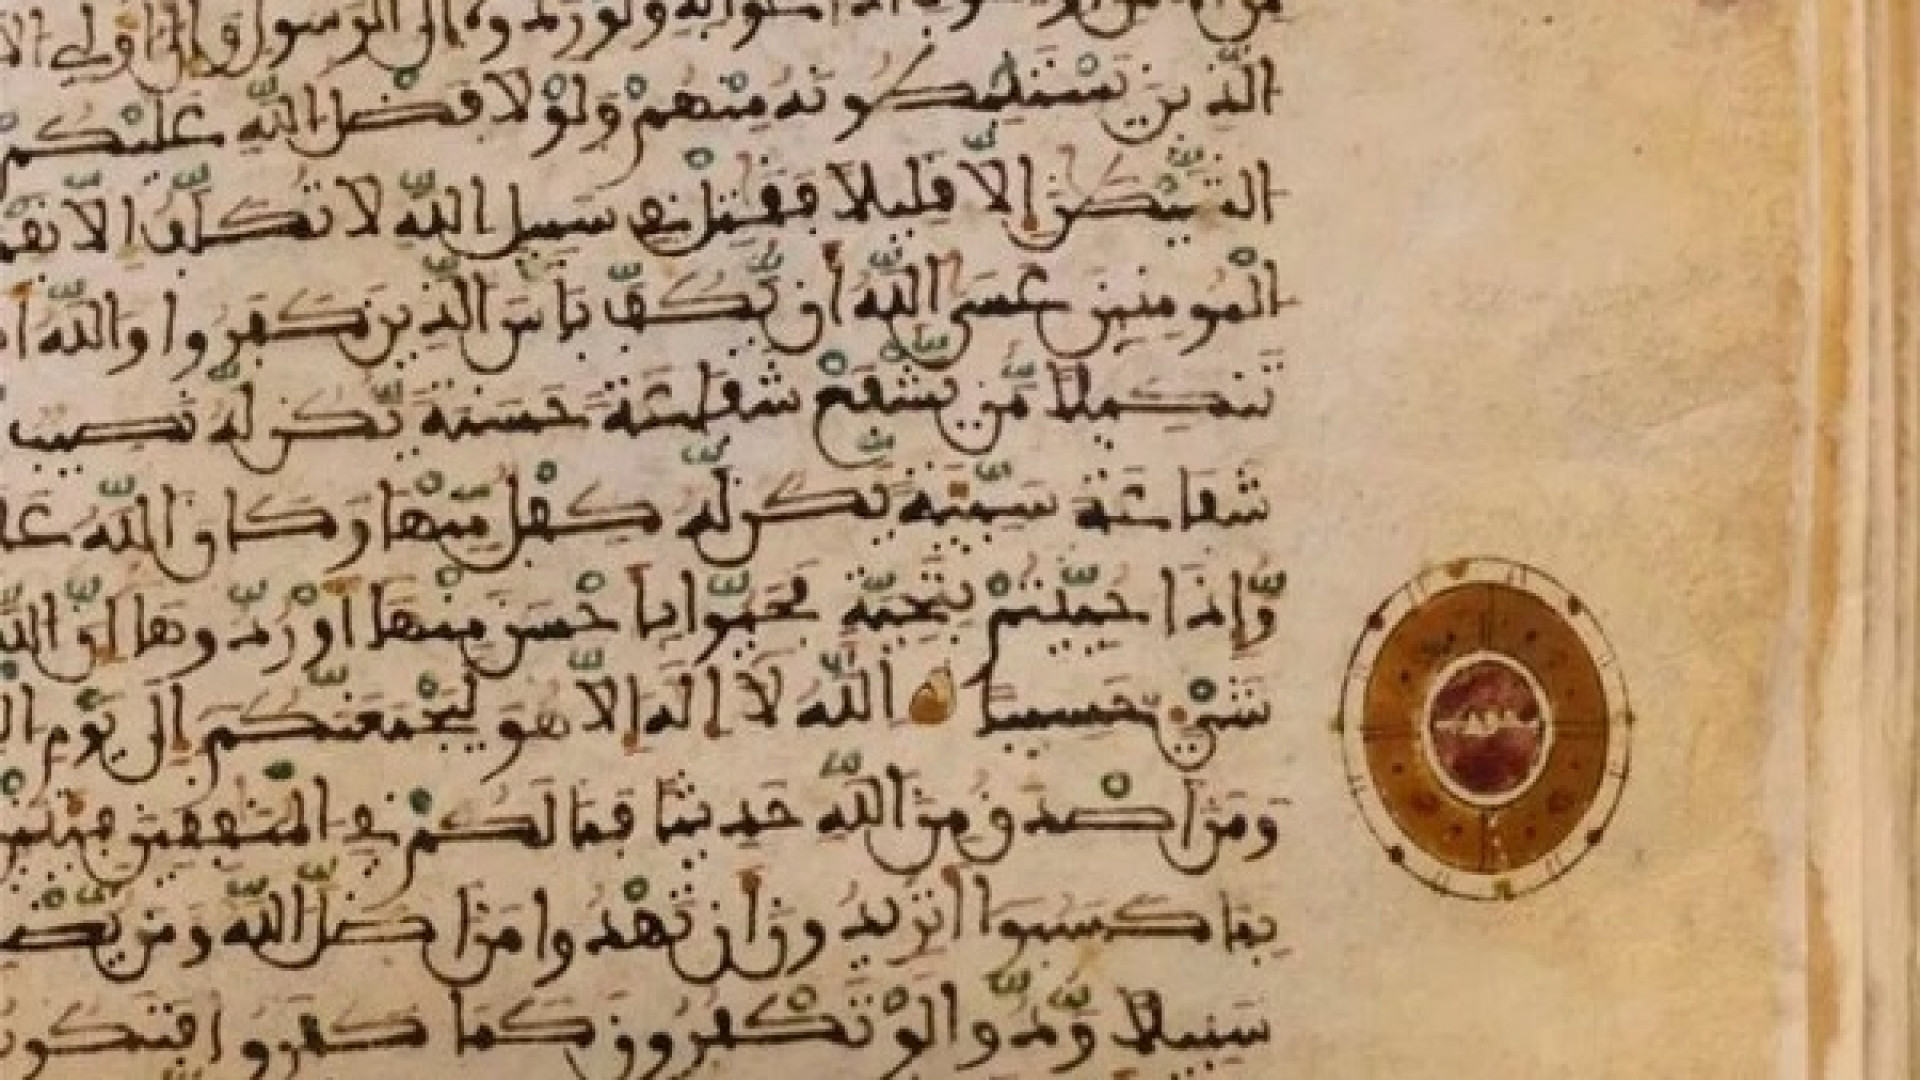 أذاعوا به ولو ردوه إلى الرسول وإلى أولي
الَّذِينَ يَسْتَنْبِطُونَهُ مِنْهُمْ وَلَوْلَا فَضْلُ اللَّهِ عَلَيْكُمْ
الشَّيْطَنَ إِلَّا قَلِيلًا فَقَتِلْ فِي سَبِيلِ اللَّهِ لَا تُكَلَّفُ إِلَّا
الْمُومِنِينَ عَسَى اللَّهُ أَنْ يَكُفَّ بَأْسَ الَّذِينَ كَفَرُوا وَاللَّهُ
تَنكِيلًا مَّن يَشْفَعْ شَفَاعَةً حَسَنَةً يَكُن لَّهُ نَصِيبٌ
شَفَاعَةً سَيِّئَةً يَكُن لَّهُ كِفْلٌ مِّنْهَا وَكَانَ اللَّهُ
وَإِذَا حُيِّيتُمْ بِتَحِيَّةٍ فَحَيُّوا بِأَحْسَنَ مِنْهَا أَوْ رُدُّوهَا إِنَّ اللَّهَ
شَيْءٍ حَسِيبًا اللَّهُ لَا إِلَهَ إِلَّا هُوَ لَيَجْمَعَنَّكُمْ إِلَى يَوْمِ
وَمَنْ أَصْدَقُ مِنَ اللَّهِ حَدِيثًا فَمَا لَكُمْ فِي الْمُنَفِقِينَ فِئَتَيْنِ
بِمَا كَسَبُوا أَتُرِيدُونَ أَن تَهْدُوا مَنْ أَضَلَّ اللَّهُ وَمَن
سَبِيلًا وَدُّوا لَوْ تَكْفُرُونَ كَمَا كَفَرُوا فَتَكُونُ